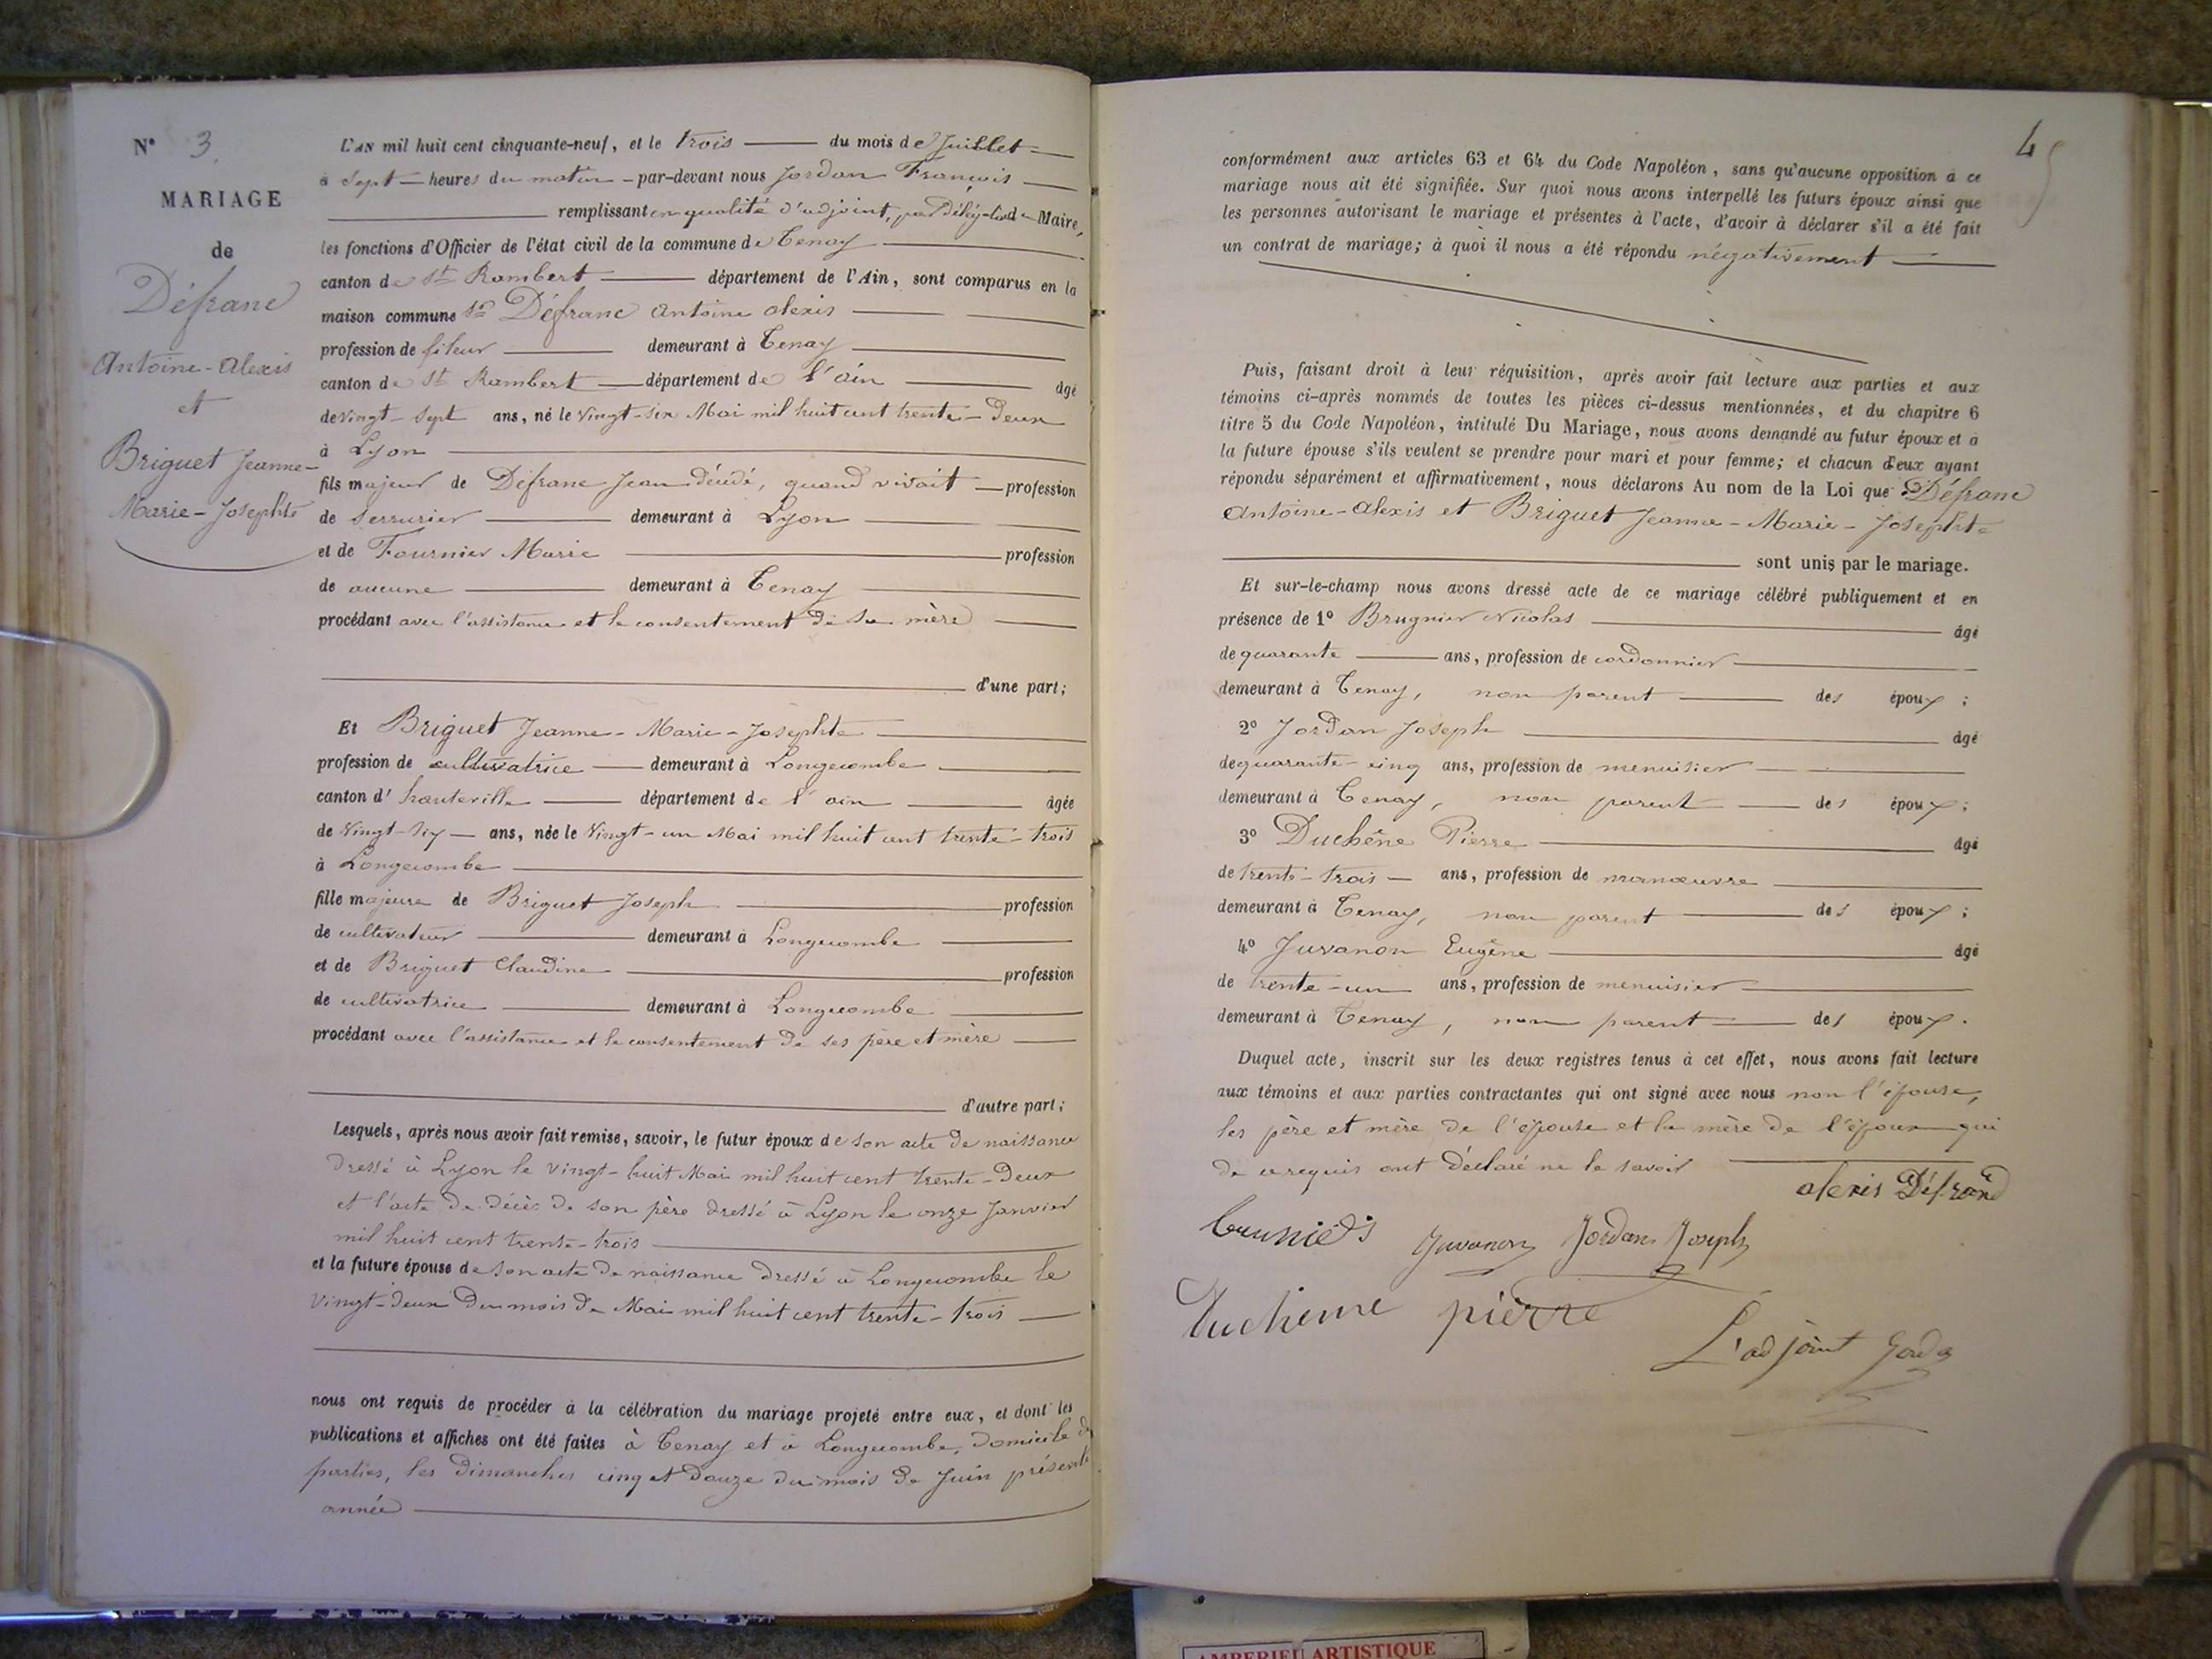 N° 3
MARIAGE
de
Défranc
Antoine-Alexis
et
Briguet Jeanne-
Marie-Josephte
L'AN mil huit cent cinquante-neuf, et le trois du mois de Juillet
à sept heures du matin par-devant nous Jordan François
remplissant en qualité d'adjoint, par Maire,
les fonctions d'Officier de l'état civil de la commune de Tenay
canton de St Rambert département de l'Ain, sont comparus en la
maison commune Sr Défranc Antoine Alexis
profession de fileur demeurant à Tenay
canton de St Rambert département de l'ain âgé
de vingt-sept ans, né le vingt-six Mai mil huit cent trente-deux
à Lyon
fils majeur de Défranc Jean décédé, quand vivait profession
de serrurier demeurant à Lyon
et de Fournier Marie profession
de aucune demeurant à Tenay
procédant avec l'assistance et le consentement de sa mère
d'une part;
Et Briguet Jeanne-Marie-Josephte
profession de cultivatrice demeurant à Longecombe
canton d'hauteville département de l'ain âgée
de Vingt-six ans, née le Vingt-un Mai mil huit cent trente-trois
à Longecombe
fille majeure de Briguet Joseph profession
de cultivateur demeurant à Longecombe
et de Briguet Claudine profession
de cultivatrice demeurant à Longecombe
procédant avec l'assistance et le consentement de ses père et mère
d'autre part;
Lesquels, après nous avoir fait remise, savoir, le futur époux de son acte de naissance
dressé à Lyon le vingt-huit Mai mil huit cent trente-deux
et l'acte de décès de son père dressé à Lyon le onze Janvier
mil huit cent trente-trois
et la future épouse de son acte de naissance dressé à Longecombe le
vingt-deux du mois de Mai mil huit cent trente-trois
nous ont requis de procéder à la célébration du mariage projeté entre eux, et dont les
publications et affiches ont été faites à Tenay et à Longecombe, domicile des
parties, les dimanches cinq et douze du mois de Juin présente
année
4
conformément aux articles 63 et 64 du Code Napoléon, sans qu'aucune opposition à ce
mariage nous ait été signifiée. Sur quoi nous avons interpellé les futurs époux ainsi que
les personnes autorisant le mariage et présentes à l'acte, d'avoir à déclarer s'il a été fait
un contrat de mariage; à quoi il nous a été répondu négativement
Puis, faisant droit à leur réquisition, après avoir fait lecture aux parties et aux
témoins ci-après nommés de toutes les pièces ci-dessus mentionnées, et du chapitre 6
titre 5 du Code Napoléon, intitulé Du Mariage, nous avons demandé au futur époux et à
la future épouse s'ils veulent se prendre pour mari et pour femme; et chacun d'eux ayant
répondu séparément et affirmativement, nous déclarons Au nom de la Loi que Défranc
Antoine-Alexis et Briguet Jeanne-Marie-Josephte
sont unis par le mariage.
Et sur-le-champ nous avons dressé acte de ce mariage célébré publiquement et en
présence de 1° Brugnier Nicolas âgé
de quarante ans, profession de cordonnier
demeurant à Tenay, non parent des époux;
2° Jordan Joseph âgé
de quarante-cinq ans, profession de menuisier
demeurant à Tenay, non parent des époux;
3° Duchêne Pierre âgé
de trente-trois ans, profession de manœuvre
demeurant à Tenay, non parent des époux;
4° Juvanon Eugène âgé
de trente-un ans, profession de menuisier
demeurant à Tenay, non parent des époux.
Duquel acte, inscrit sur les deux registres tenus à cet effet, nous avons fait lecture
aux témoins et aux parties contractantes qui ont signé avec nous non l'épouse,
les père et mère de l'épouse et la mère de l'époux qui
de ce requis ont déclaré ne le savoir
alexis Défranc
Juvanon Jordan Joseph
Duchenne pierre
L'adjoint
AMBERIEU ARTISTIQUE